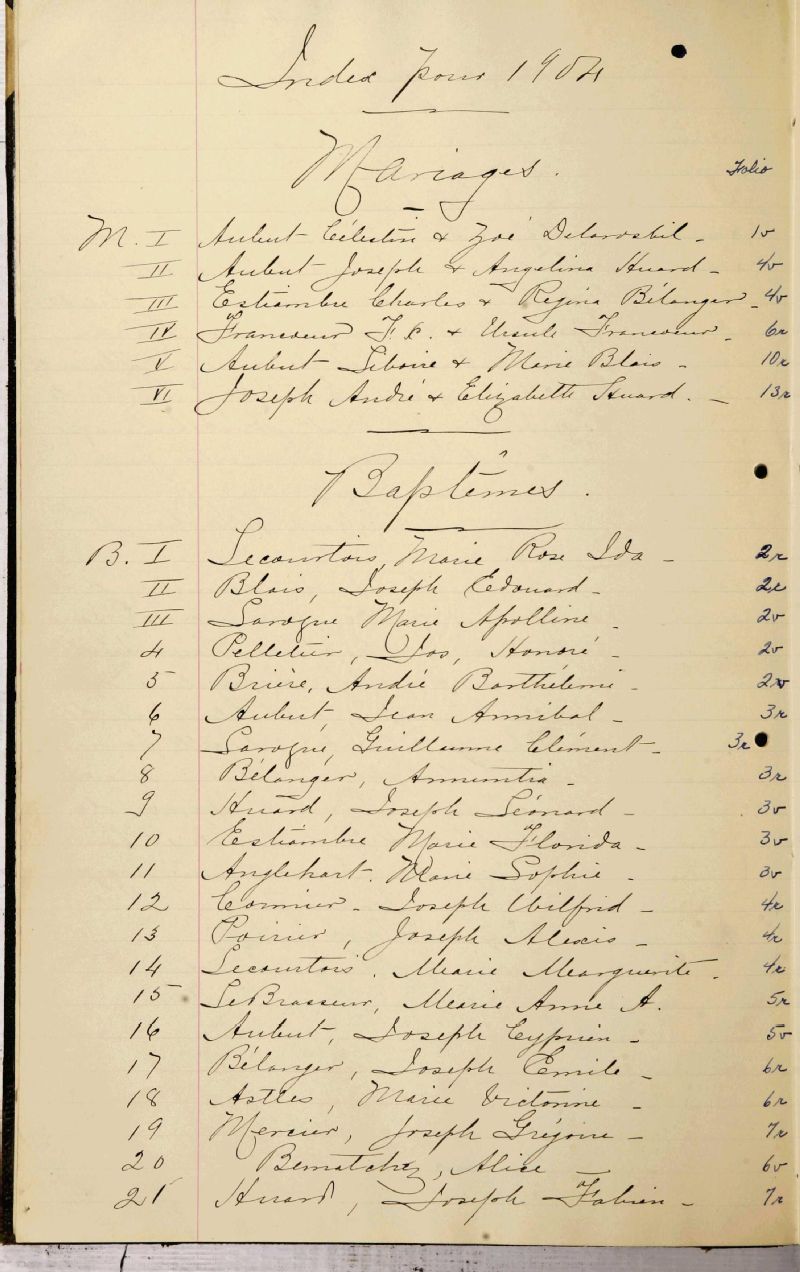 Index pour 1904
Mariages.
Folio
M. I Aubut Célestin & Zoé Delarosbil - 1v
II Aubut Joseph & Angelina Huard - 4v
III Estiambre Charles & Regina Bélanger - 4v
IV Francoeur F. X. & Ursule Francoeur - 6r
V Aubut Liboire & Marie Blais - 10r
VI Joseph André & Elizabeth Huard. - 13r
Baptêmes.
B. I Lecourtois, Marie Rose Ida - 2r
II Blais, Joseph Edouard - 2r
III Larogne Marie Apolline - 2v
4 Pelletier, Jos, Honoré - 2v
5 Brière, André Barthélemi - 2v
6 Aubut, Jean Annibal - 3r
7 Larogné, Guillaume Clément - 3r
8 Bélanger, Annuntia - 3r
9 Huard, Joseph Léonard - 3v
10 Estiambre Marie Florida - 3v
11 Anglehart. Marie Sophie - 3v
12 Cormier - Joseph Wilfrid - 4r
13 Poirier, Joseph Alexis - 4r
14 Lecourtois, Marie Marguerite - 4r
15 LeBrasseur, Marie Anne A. 5r
16 Aubut, Joseph Cyprien - 5v
17 Bélanger, Joseph Emile - 6r
18 Astles, Marie Victorine - 6r
19 Mercier, Joseph Grégoire - 7r
20 Bernatchez, Alice - 6v
21 Huard, Joseph Fabien - 7r